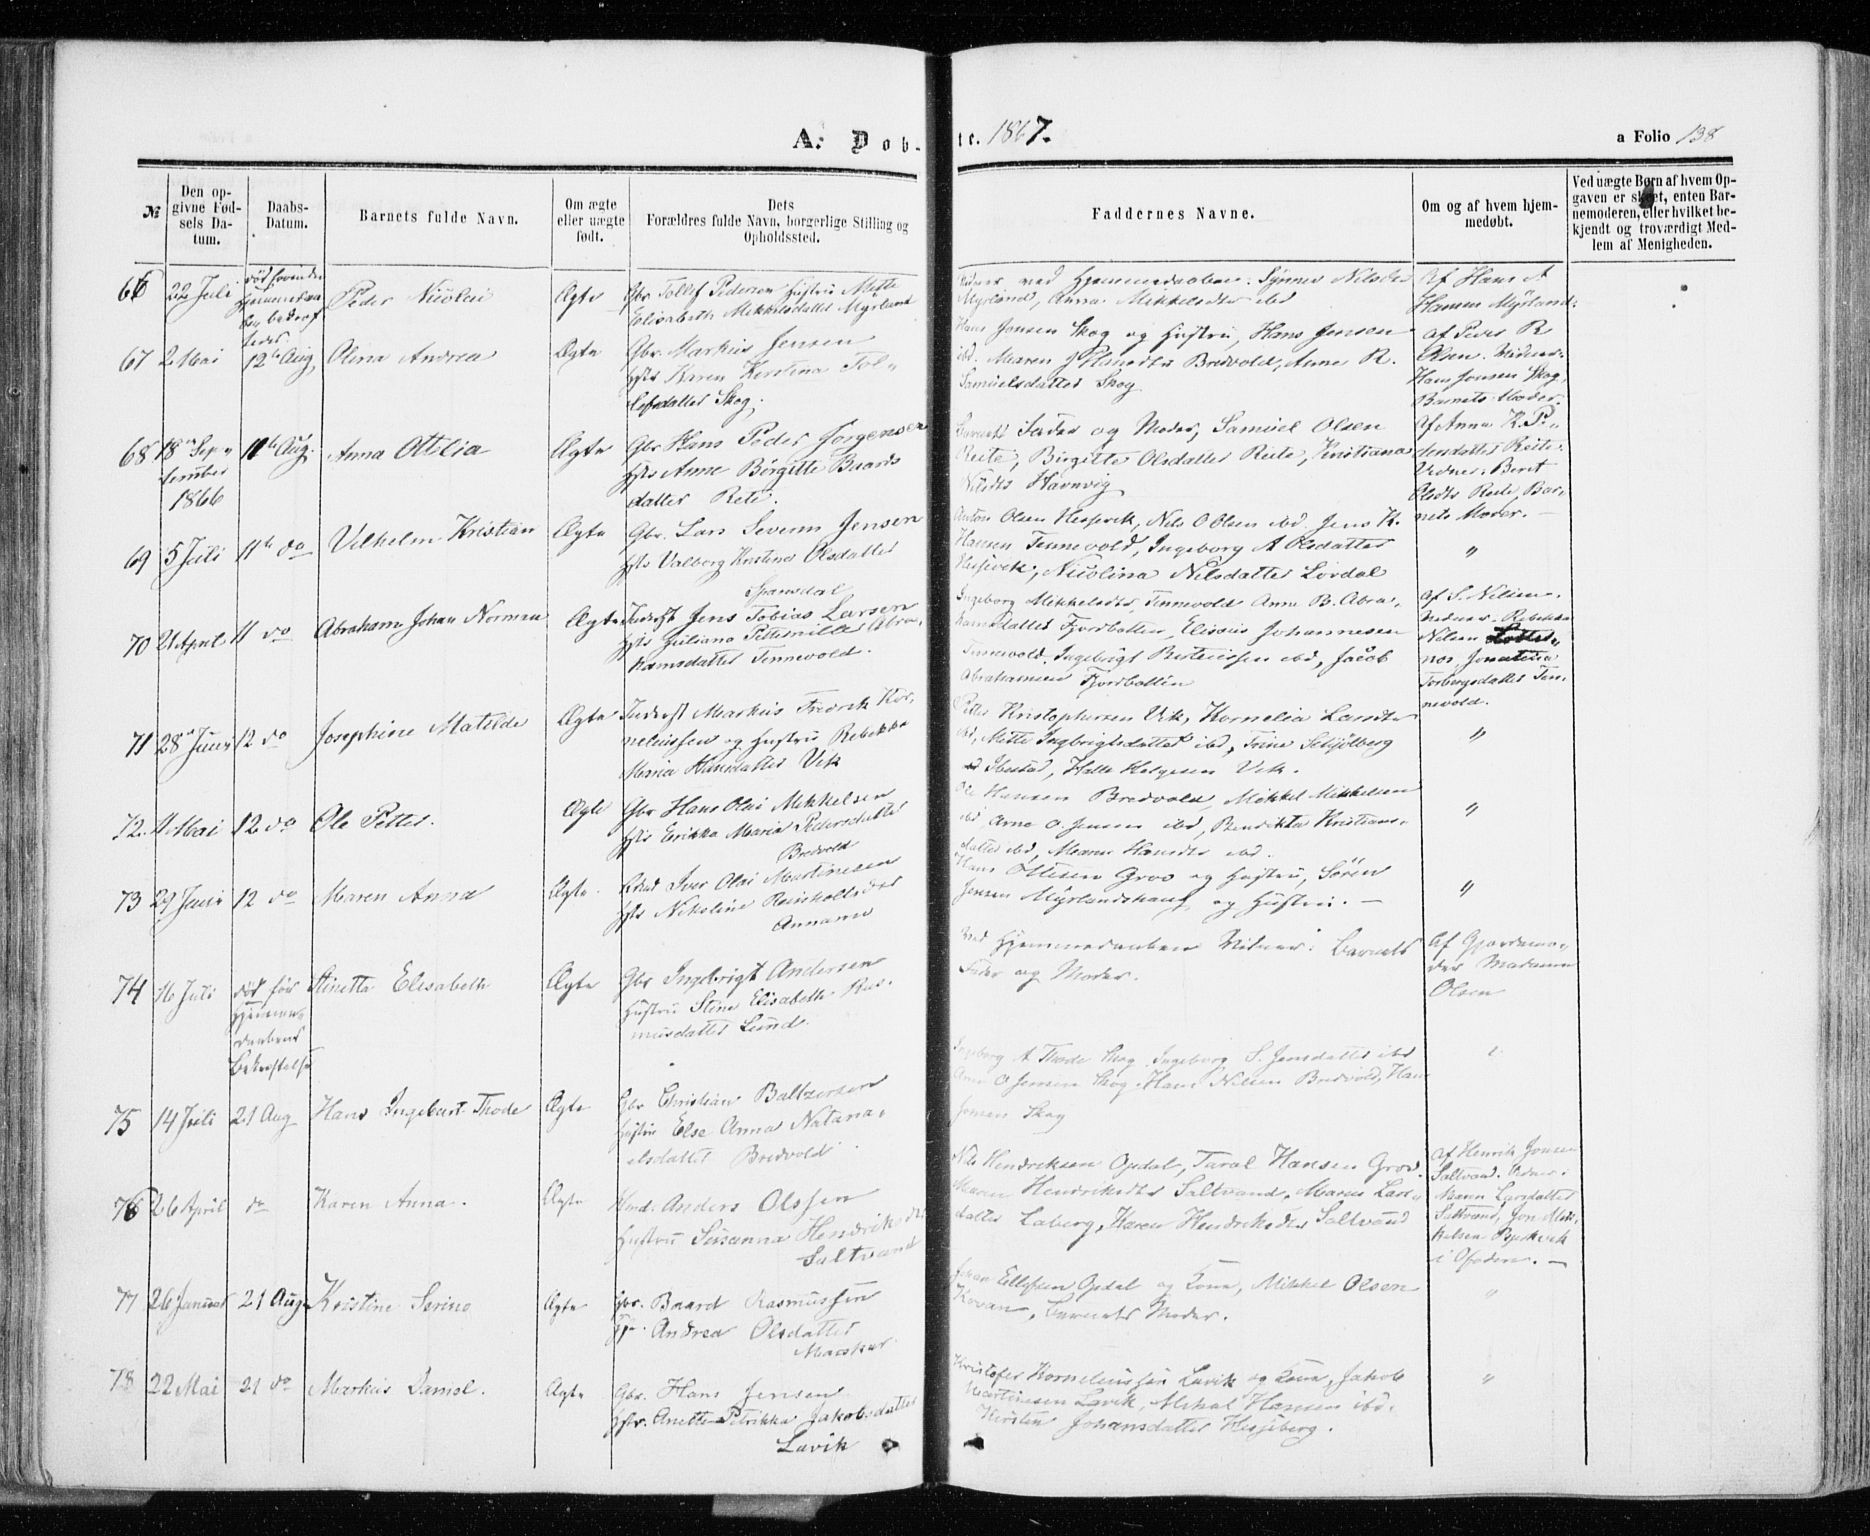 A. Dob-te. 1867.
a Folio 138
№
Den op-
givne Fød-
sels Da-
tum.
Daabs-
Datum.
Barnets fulde Navn.
Om ægte
eller uægte
født.
Dets
Forældres fulde Navn, borgerlige Stilling og
Opholdssted.
Faddernes Navne.
Om og af hvem hjem-
medøbt.
Ved uægte Børn af hvem Op-
gaven er skeet, enten Bar-
nemoderen, eller hvilket be-
kjendt og troværdigt Med-
lem af Menigheden.
66 22 Juli
død forinden
Hjemmedaa
ben bekræf
tedes
Peder Nicolai
Ægte
Gbr Tollef Pedersen Hustru Mette
Elisabeth Mikkelsdatter Myrland
ved Hjemmedaaben: Synnev Nilsdtr
Myrland, Anna Mikkelsdtr ibd
Af Hans A
Hansen Myrland.
67 2 Mai 12te Aug.
Olina Andrea
Ægte
Gbr. Markus Jensen
Hstr Karen Kerstina Tol-
lefsdatter Skog.
Hans Jonsen Skog og Hustru, Hans Jensen
ibd. Maren J Hansdtr Bredvold, Anne R.
Samuelsdatter Skog
af Peder R
Olsen. Vidner:
Hans Jonsen Skog,
Barnets Moder.
68 18de Sep-
tember
1866
11te Aug.
Anna Otelia
Ægte
Gbr Hans Peder Jørgensen
Hstr Anne Birgitte Baards
datter Rete.
Barnets Fader og Moder, Samuel Olsen
Reite, Birgitte Olsdatter Reite, Kristiana
Nilsdtr Havnvig
Af Anna K. Pe-
dersdatter Reite.
Vidner: Berit
Olsdtr Reite, Bar-
nets Moder. —
69 5 Juli 11te do
Vilhelm Kristian
Ægte
Gbr. Lars Severin Jensen
Hstr Valborg Kristine Olsdatter
Spansdal
Anton Olsen Hesjevik, Nils O Olsen ibd. Jens K.
Hansen Tennevold, Ingeborg A Olsdatter
Hesjevik, Nicolina Nilsdatter Lovdal
"
70 21 April 11 do
Abraham Johan Norman
Ægte
Inderst Jens Tobias Larsen
Hstr Juliana Petternille Abra-
hamsdatter Tennevold.
Ingeborg Mikkelsdtr Tennevold Anne B. Abra-
hamsdatter Fjordbotten, Elisius Johannesen
Tennevold, Ingebrigt ibd, Jacob
Abrahamsen Fjordbotten
af S. Nilsen.
Vidner: Rebekka
Nilsen
Torbergsdatter Ten-
nevold.
71 28 Juni 12 do
Josephine Matilde
Ægte
Inderst Markus Fredrik Kor-
neliussen og Hustru Rebekka
Maria Hansdatter Vik
Petter Kristophersen Vik, Kornelia
ibd, Mette Ingbrigtsdatter ibd, Trine Schjølberg
Ibestad, Halle Helgesen Vik.
"
72. 4 Mai 12 do
Ole Petter.
Ægte
Gbr Hans Olai Mikkelsen
Hstr Erikka Maria Pedersdatter
Bredvold
Ole Hansen Bredvold, Mikkel Mikkelsen
ibd, Arne O. Jensen ibd, Bendikta Kristians-
datter ibd, Maren Hansdtr ibd.
"
73 29 Juni 12 do
Maren Anna
Ægte.
Iver Olai Martinesen
Hstr Nikoline Reinholtsdtr
Aanamn
Hans Ottesen Grov og Hustru, Sören
Jensen Myrlandshaug og Hustru. —
"
74 16 Juli
død før
Hjemme-
daabens
Bekræftelse
Stinetta Elisabeth
Ægte
Gbr Ingebrigt Andersen
Hustru Stine Elisabeth Ras-
musdatter Lund.
Ved Hjemmedaaben Vidner: Barnets
Fader og Moder.
Af Gjordemo-
der Madame
Olsen
75 14 Juli 21 Aug
Hans Ingebart Thode
Ægte
Gbr Christian Baltzersen
Hustru Else Anna Natana-
elsdatter Bredvold
Ingeborg A Thode Skog, Ingeborg S. Jensdatter ibd
Arne O Jensen Skog, Hans Nilsen Bredvold, Hans
Jonsen Skog
"
76 26 April do
Karen Anna.
Ægte
Anders Olssen
Hustru Susanna Hendriksdtr
Saltvand
Nils Hendriksen Opdal, Taral Hansen Grov
Maren Hendriksdtr Saltvand, Maren Lars-
datter Laberg, Karen Hendriksdtr Saltvand
af Henrik Jonsen
Saltvand. Vidner:
Maren Larsdatter
Saltvand, Jon Mik-
kelsen
i Ofoden. —
77 26 Januar 21 Aug
Kristine Serine
Ægte
Gbr. Baard Rasmussen
Andrea Olsdatter
Johan Ellefsen Opdal og Kone, Mikkel Olsen
Kovan, Barnets Moder.
"
78 22 Mai 21 do
Markus Daniel.
Ægte
Gbr. Hans Jensen
Hstr. Anette Petrikka Jakobsdatter
Lavik
Kristofer Korneliussen Lavik og Kone, Jakob
Martinesen Lavik, Mikal Hansen ibd.
Kirsten Johansdatter Hesjeberg.
"